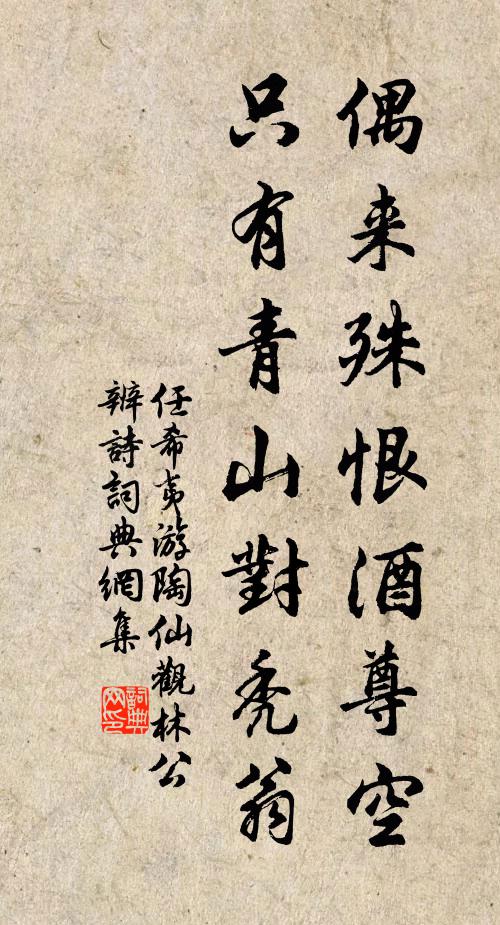 偶来殊恨酒尊空
只有青山對禿翁
任希夷游陶仙觀林公
辨詩詞典網集
詞典
网印